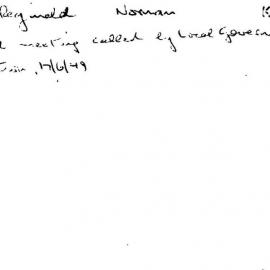 Reginald Norman K
d meeting called by Local Govern
tion, 17/6/49